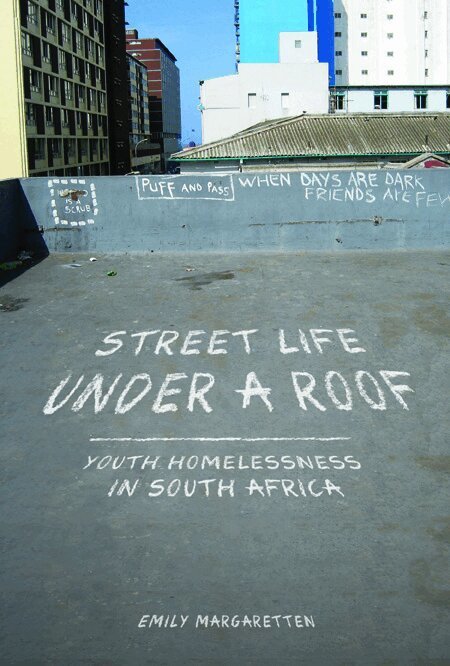 SCRUB
PUFF AND PASS
WHEN DAYS ARE DARK
FRIENDS ARE FEW
STREET LIFE
UNDER A ROOF
YOUTH HOMELESSNESS
IN SOUTH AFRICA
EMILY MARGARETTEN